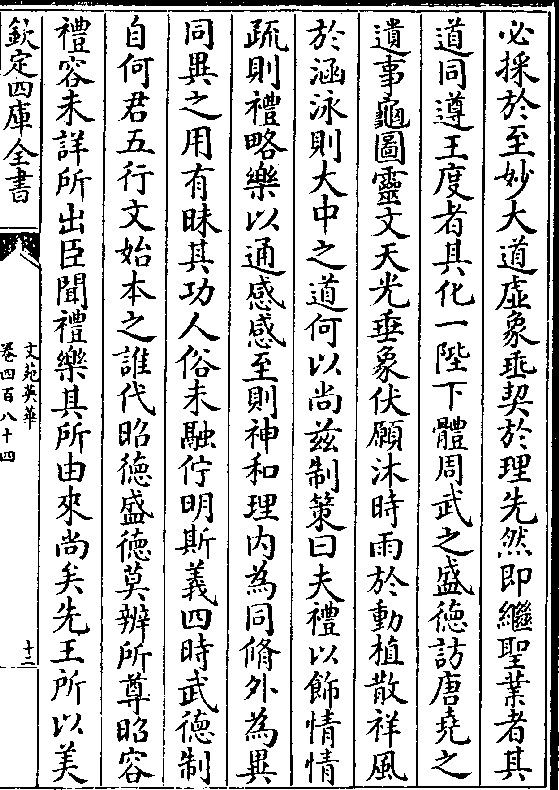 必採於至妙大道虛象乖契於理先然即繼聖業者其
道同遵王度者其化一陛下體周武之盛德訪唐堯之
遺事龜圖靈文天光垂象伏願沐時雨於動植散祥風
於涵泳則大中之道何以尚兹制策曰夫禮以飾情情
疏則禮略樂以通感感至則神和理内為同脩外為異
同異之用有昧其功人俗未融佇明斯義四時武德制
自何君五行文始本之誰代昭德盛德莫辨所尊昭容
禮容未詳所出臣聞禮樂其所由來尚矣先王所以美
欽定四庫全書
文苑英華
卷四百八十四
十二